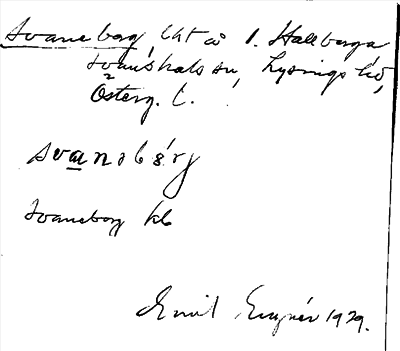 Svaneborg lht å 1. Hallberga
Svanshals sn, Lysings hd,
Österg. l.
svansbärj
Svaneborg kb
Emil 1929.